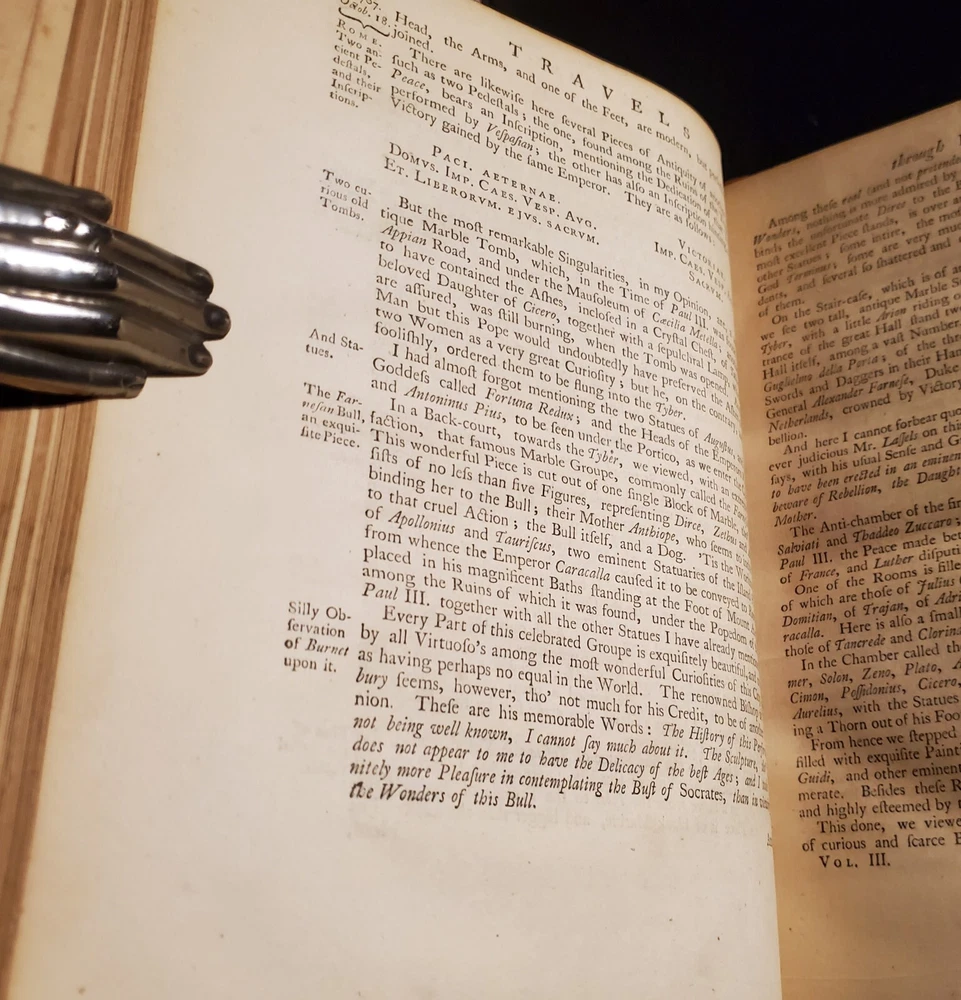 TRAVELS
Octob. 18.
Head, the Arms, and one of the Feet, are modern, but
joined.
ROME.
Two an-
cient Pe-
destals,
and their
Inscrip-
tions.
There are likewiſe here ſeveral Pieces of Antiquity
ſuch as two Pedeſtals; the one, found among the Ruins of
Peace, bears an Inſcription, mentioning the Dedication of
performed by Veſpaſian; the other has alſo an Inſcription
Victory gained by the ſame Emperor. They are as follows:
PACI. AETERNAE.
DOMVS. IMP. CAES. VESP. AVG.
ET. LIBERORVM. EJVS. SACRVM.
VICTORIAE
IMP. CAES. VESP.
SACRVM.
Two cu-
rious old
Tombs.
But the moſt remarkable Singularities, in my Opinion, are
tique Marble Tomb, which, in the Time of Paul III. was
Appian Road, and under the Mauſoleum of Cæcilia Metella
to have contained the Aſhes, incloſed in a Cryſtal Cheſt, of
beloved Daughter of Cicero, together with a ſepulchral Lamp
are aſſured, was ſtill burning, when the Tomb was opened.
Man but this Pope would undoubtedly have preſerved the Aſhes
two Women as a very great Curioſity; but he, on the contrary,
fooliſhly, ordered them to be flung into the Tyber.
And Sta-
tues.
I had almoſt forgot mentioning the two Statues of Auguſtus,
Goddeſs called Fortuna Redux; and the Heads of the Emperors
and Antoninus Pius, to be ſeen under the Portico, as we enter the
The Far-
neſan Bull,
an exqui-
ſite Piece.
In a Back-court, towards the Tyber, we viewed, with an
faction, that famous Marble Groupe, commonly called the
This wonderful Piece is cut out of one ſingle Block of Marble,
ſiſts of no leſs than five Figures, repreſenting Dirce, Zethus
binding her to the Bull; their Mother Anthiope, who ſeems to
to that cruel Action; the Bull itſelf, and a Dog. 'Tis the Work
of Apollonius and Tauriſcus, two eminent Statuaries of the Iſland
from whence the Emperor Caracalla cauſed it to be conveyed to
placed in his magnificent Baths ſtanding at the Foot of Mount
among the Ruins of which it was found, under the Popedom of
Paul III. together with all the other Statues I have already
Silly Ob-
ſervation
of Burnet
upon it.
Every Part of this celebrated Groupe is exquiſitely beautiful, and
by all Virtuoſo's among the moſt wonderful Curioſities of this
as having perhaps no equal in the World. The renowned Biſhop
bury ſeems, however, tho' not much for his Credit, to be of
nion. Theſe are his memorable Words: The Hiſtory of this
not being well known, I cannot ſay much about it. The Sculpture,
does not appear to me to have the Delicacy of the beſt Ages; and I
nitely more Pleaſure in contemplating the Buſt of Socrates, than in
the Wonders of this Bull.
through
Among theſe real (and not pretended
Wonders, nothing is more admired by
binds the unfortunate Dirce to the
moſt excellent Piece ſtands, is over
other Statues; ſome intire, the moſt
God Terminus; ſome are very much
dents, and ſeveral ſo ſhattered and
of them.
On the Stair-caſe, which is of
we ſee two tall, antique Marble
Tyber, with a little Arion riding
trance of the great Hall ſtand two
Hall itſelf, among a vaſt Number
Guglielmo della Portia; of the
Swords and Daggers in their Hands
General Alexander Farneſe, Duke
Netherlands, crowned by Victory
bellion.
And here I cannot forbear
ever judicious Mr. Laſſels on this
ſays, with his uſual Senſe and
to have been erected in an eminent
beware of Rebellion, the Daughter
Mother.
The Anti-chamber of the
Salviati and Thaddeo Zuccaro;
Paul III. the Peace made
of France, and Luther
One of the Rooms is
of which are thoſe of Julius
Domitian, of Trajan, of
racalla. Here is alſo a ſmall
thoſe of Tancrede and Clorinda
In the Chamber called the
mer, Solon, Zeno, Plato,
Cimon, Poſſidonius, Cicero,
Aurelius, with the Statues
ing a Thorn out of his Foot
From hence we ſtepped
filled with exquiſite
Guidi, and other eminent
merate. Beſides theſe
and highly eſteemed by
This done, we viewed
of curious and ſcarce
VOL. III.